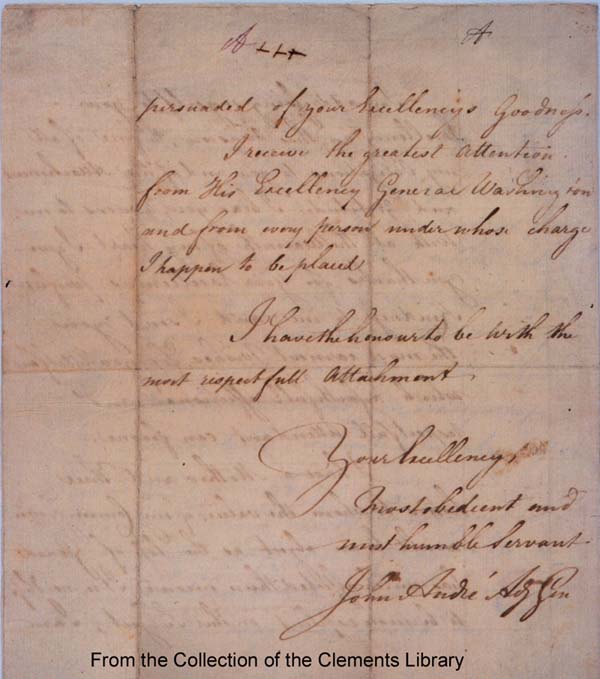 A
A
persuaded of your Excellency's Goodness.
I receive the greatest Attention
from His Excellency General Washington
and from every person under whose charge
I happen to be placed
I have the honour to be with the
most respectfull Attachment
Your Excellency's
Most obedient and
most humble Servant
John André Adj Gen
From the Collection of the Clements Library